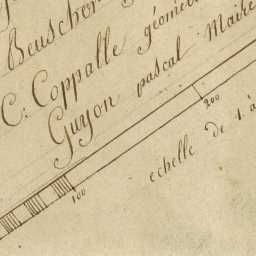 Beuscher
C: Coppalle géomet
Guyon pascal Maire
200
echelle de 1 à
100